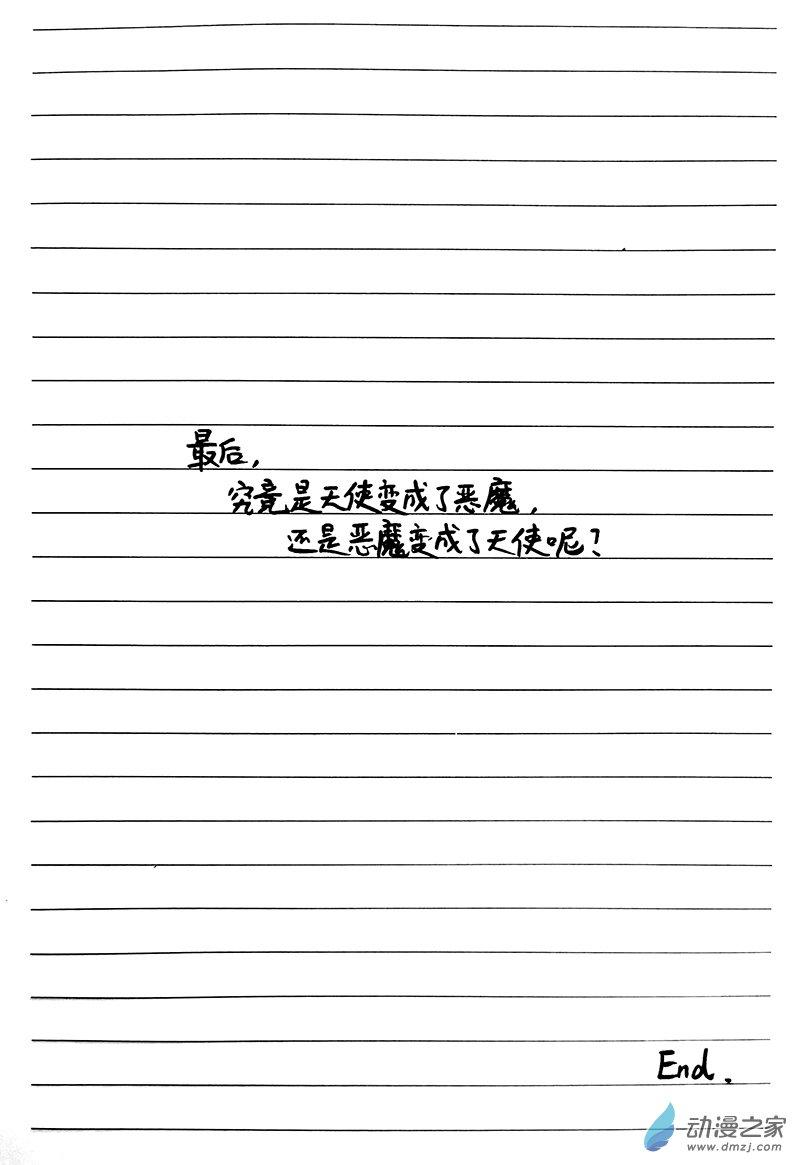 最后，
究竟是天使变成了恶魔，
还是恶魔变成了天使呢？
End.
动漫之家
www.dmzj.com